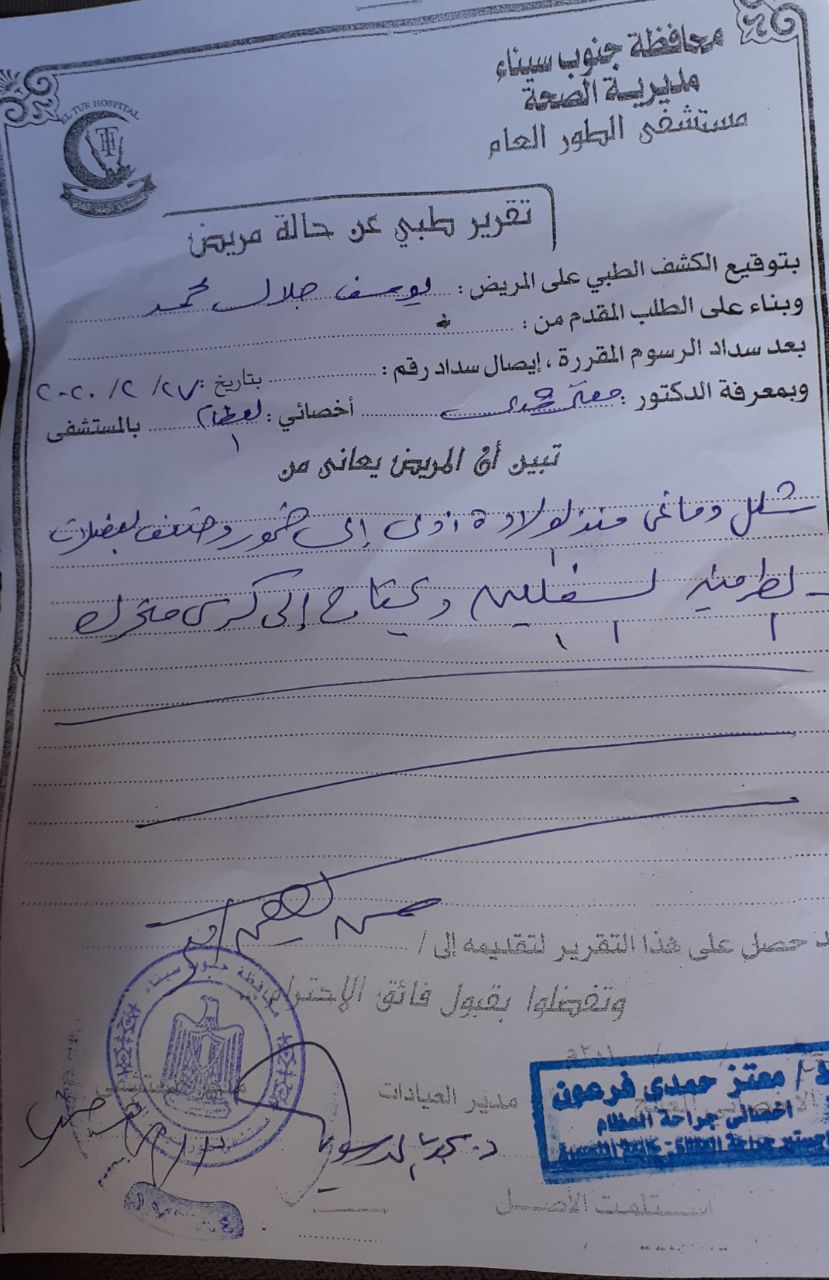 محافظة جنوب سيناء
مديرية الصحة
مستشفى الطور العام
EL TUR HOSPITAL
تقرير طبي عن حالة مريض
بتوقيع الكشف الطبي على المريض : يوسف جلال محمد
وبناء على الطلب المقدم من :
بعد سداد الرسوم المقررة ، إيصال سداد رقم : بتاريخ : ٢٧ / ٢ / ٢٠٢٠
وبمعرفة الدكتور : معتز حمدى أخصائي : العظام بالمستشفى
تبين أن المريض يعانى من
شلل دماغى منذ الولادة أدى إلى ضمور وضعف العضلات
الطرفين السفليين ويحتاج إلى كرسى متحرك
حصل على هذا التقرير لتقديمه إلى /
وتفضلوا بقبول فائق الإحترام
محافظة جنوب سيناء
د / معتز حمدى فرعون
اخصائى جراحة العظام
مدير العيادات
استلمت الأصل